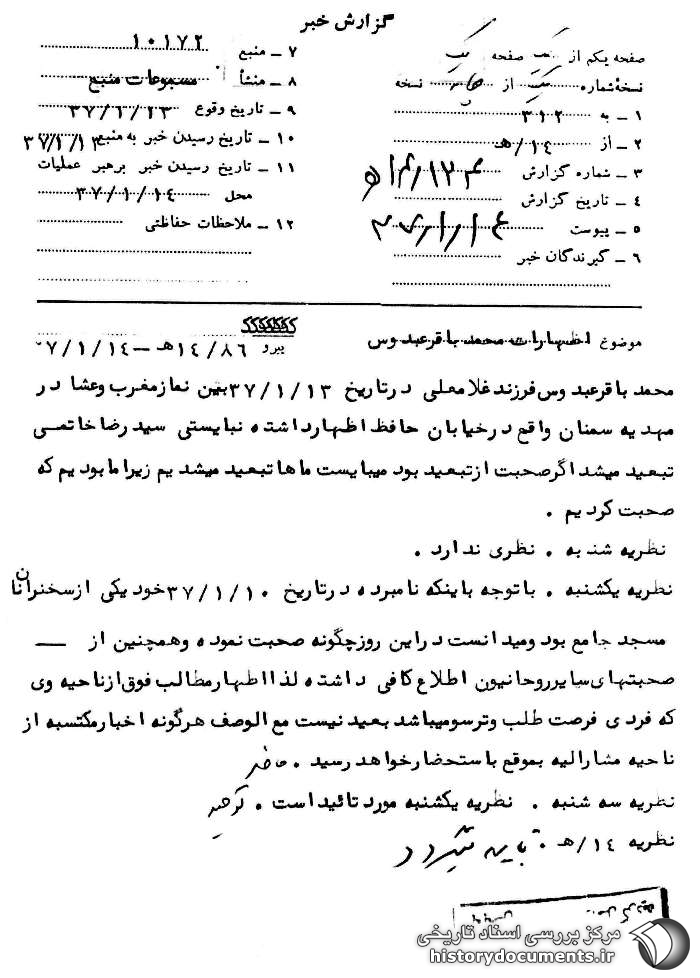 گزارش خبر
صفحه یکم از یک صفحه یک
نسخهٔ شماره یک از چهار نسخه
۱ ـ به ۳۱۲
۲ ـ از ۱۴/ه‍
۳ ـ شماره گزارش
۴ ـ تاریخ گزارش
۵ ـ پیوست
۶ ـ گیرندگان خبر
۷ ـ منبع ۱۰۱۷۲
۸ ـ منشأ مسموعات منبع
۹ ـ تاریخ وقوع ۳۷/۱/۱۳
۱۰ ـ تاریخ رسیدن خبر به منبع ۳۷/۱/۱۳
۱۱ ـ تاریخ رسیدن خبر برهبر عملیات
محل ۳۷/۱/۱۴
۱۲ ـ ملاحظات حفاظتی
موضوع اظهارات محمد باقرعبدوس
پیرو ۱۴/۸۶ه‍ ـ ۳۷/۱/۱۴
محمد باقرعبدوس فرزند غلامعلی درتاریخ ۳۷/۱/۱۳ بین نماز مغرب وعشا در
مهدیه سمنان واقع درخیابان حافظ اظهارداشته نبایستی سید رضا خاتمی
تبعید میشد اگرصحبت ازتبعید بود میبایست ماها تبعید میشدیم زیرا ما بودیم که
صحبت کردیم .
نظریه شنبه . نظری ندارد .
نظریه یکشنبه . با توجه باینکه نامبرده درتاریخ ۳۷/۱/۱۰ خود یکی ازسخنرانان
مسجد جامع بود ومیدانست دراین روزچگونه صحبت نموده وهمچنین از
صحبتهای سایرروحانیون اطلاع کافی داشته لذا اظهارمطالب فوق ازناحیه وی
که فردی فرصت طلب وترسومیباشد بعید نیست مع الوصف هرگونه اخبارمکتسبه از
ناحیه مشارالیه بموقع باستحضارخواهد رسید .
نظریه سه شنبه . نظریه یکشنبه مورد تائید است .
نظریه ۱۴/ه‍ .
مرکز بررسی اسناد تاریخی
historydocuments.ir